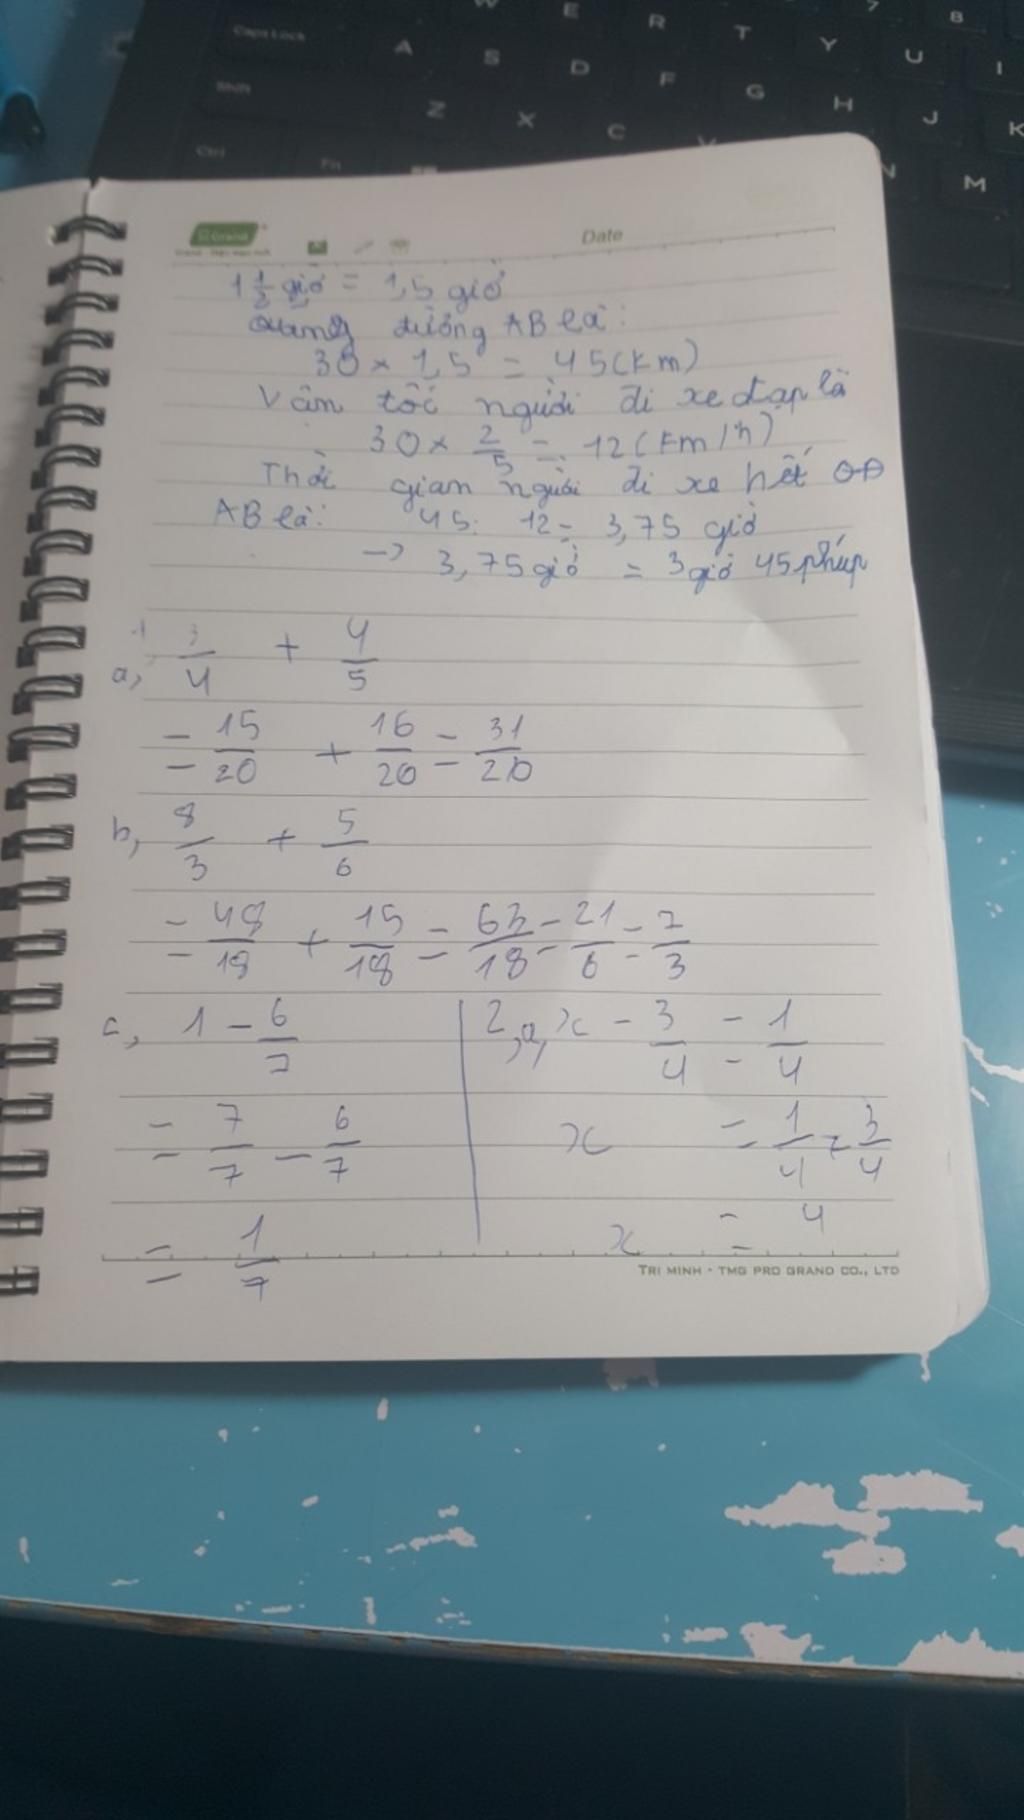 Caps Lock
W E R T Y U I 7 8
A S D F G H J K
Z X C V N M
Ctrl Fn
Grand
Date
1 1/2 giờ = 1,5 giờ
Quãng đường AB là:
30 × 1,5 = 45 (km)
Vâm tốc người đi xe đạp là
30 × 2/5 = 12 (km/h)
Thời gian người đi xe hết QĐ
AB là: 45 : 12 = 3,75 giờ
→ 3,75 giờ = 3 giờ 45 phúp
1
a, 3/4 + 4/5
= 15/20 + 16/20 = 31/20
b, 8/3 + 5/6
= 48/18 + 15/18 = 63/18 = 21/6 = 7/3
c, 1 - 6/7
= 7/7 - 6/7
= 1/7
2, a, x - 3/4 = 1/4
x = 1/4 + 3/4
x = 4
TRI MINH - TMG PRO GRAND CO., LTD